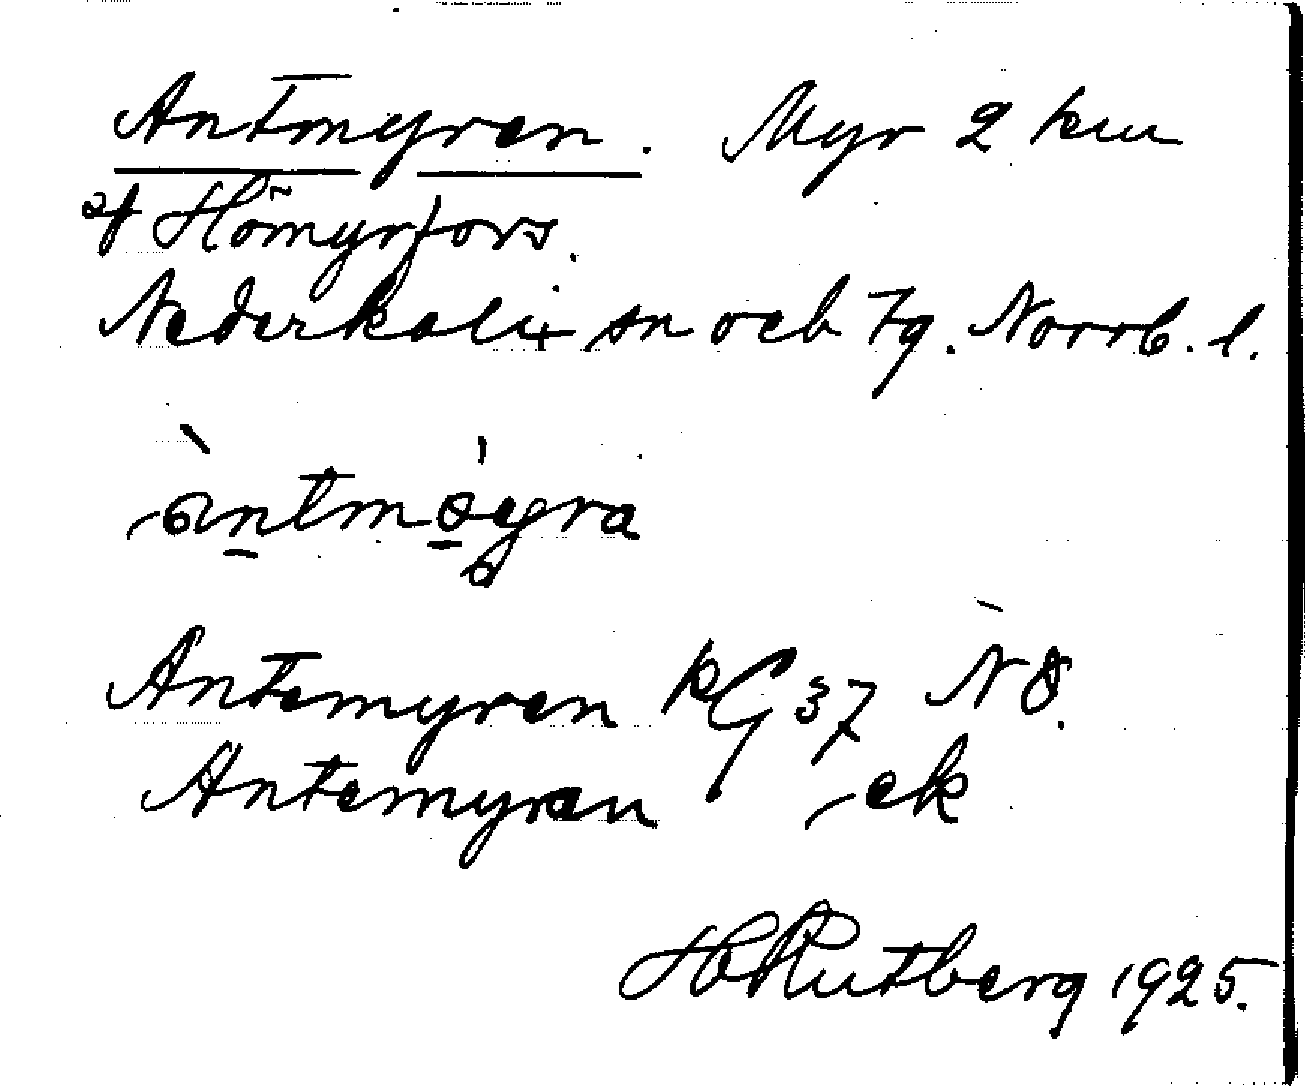 Antmyren. Myr 2 km
af Hömyrfors.
Nederkalix sn och Tg. Norrb. l.
Antemyren kG 37 NÖ.
Antemyren ek
H Rutberg 1925.